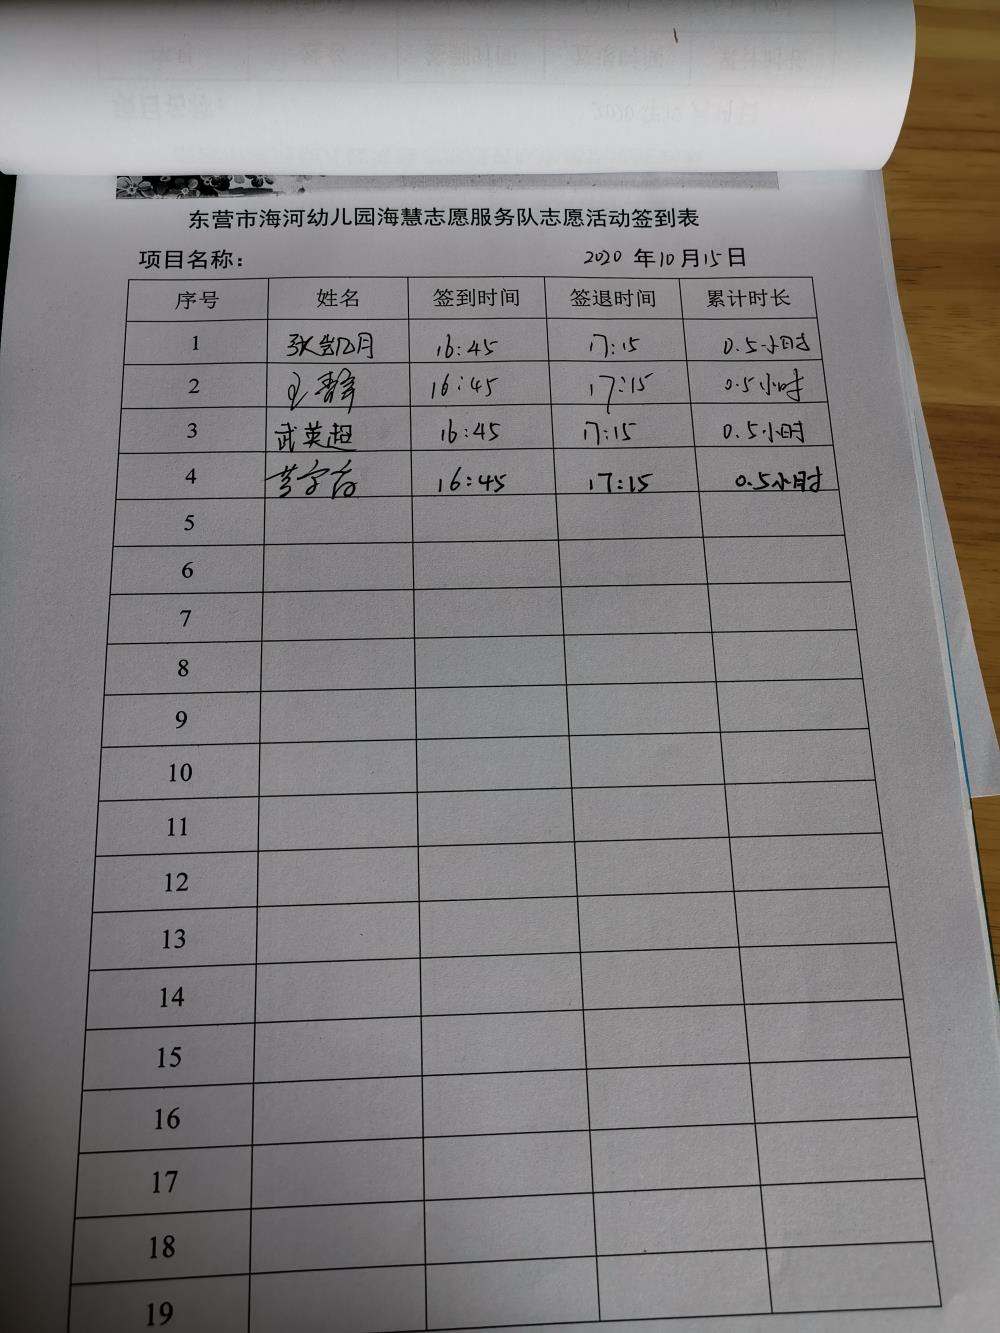 东营市海河幼儿园海慧志愿服务队志愿活动签到表
项目名称： 2020 年10月15日
序号 姓名 签到时间 签退时间 累计时长
1 张凯月 16:45 17:15 0.5小时
2 王静 16:45 17:15 0.5小时
3 武英超 16:45 17:15 0.5小时
4 16:45 17:15 0.5小时
5
6
7
8
9
10
11
12
13
14
15
16
17
18
19